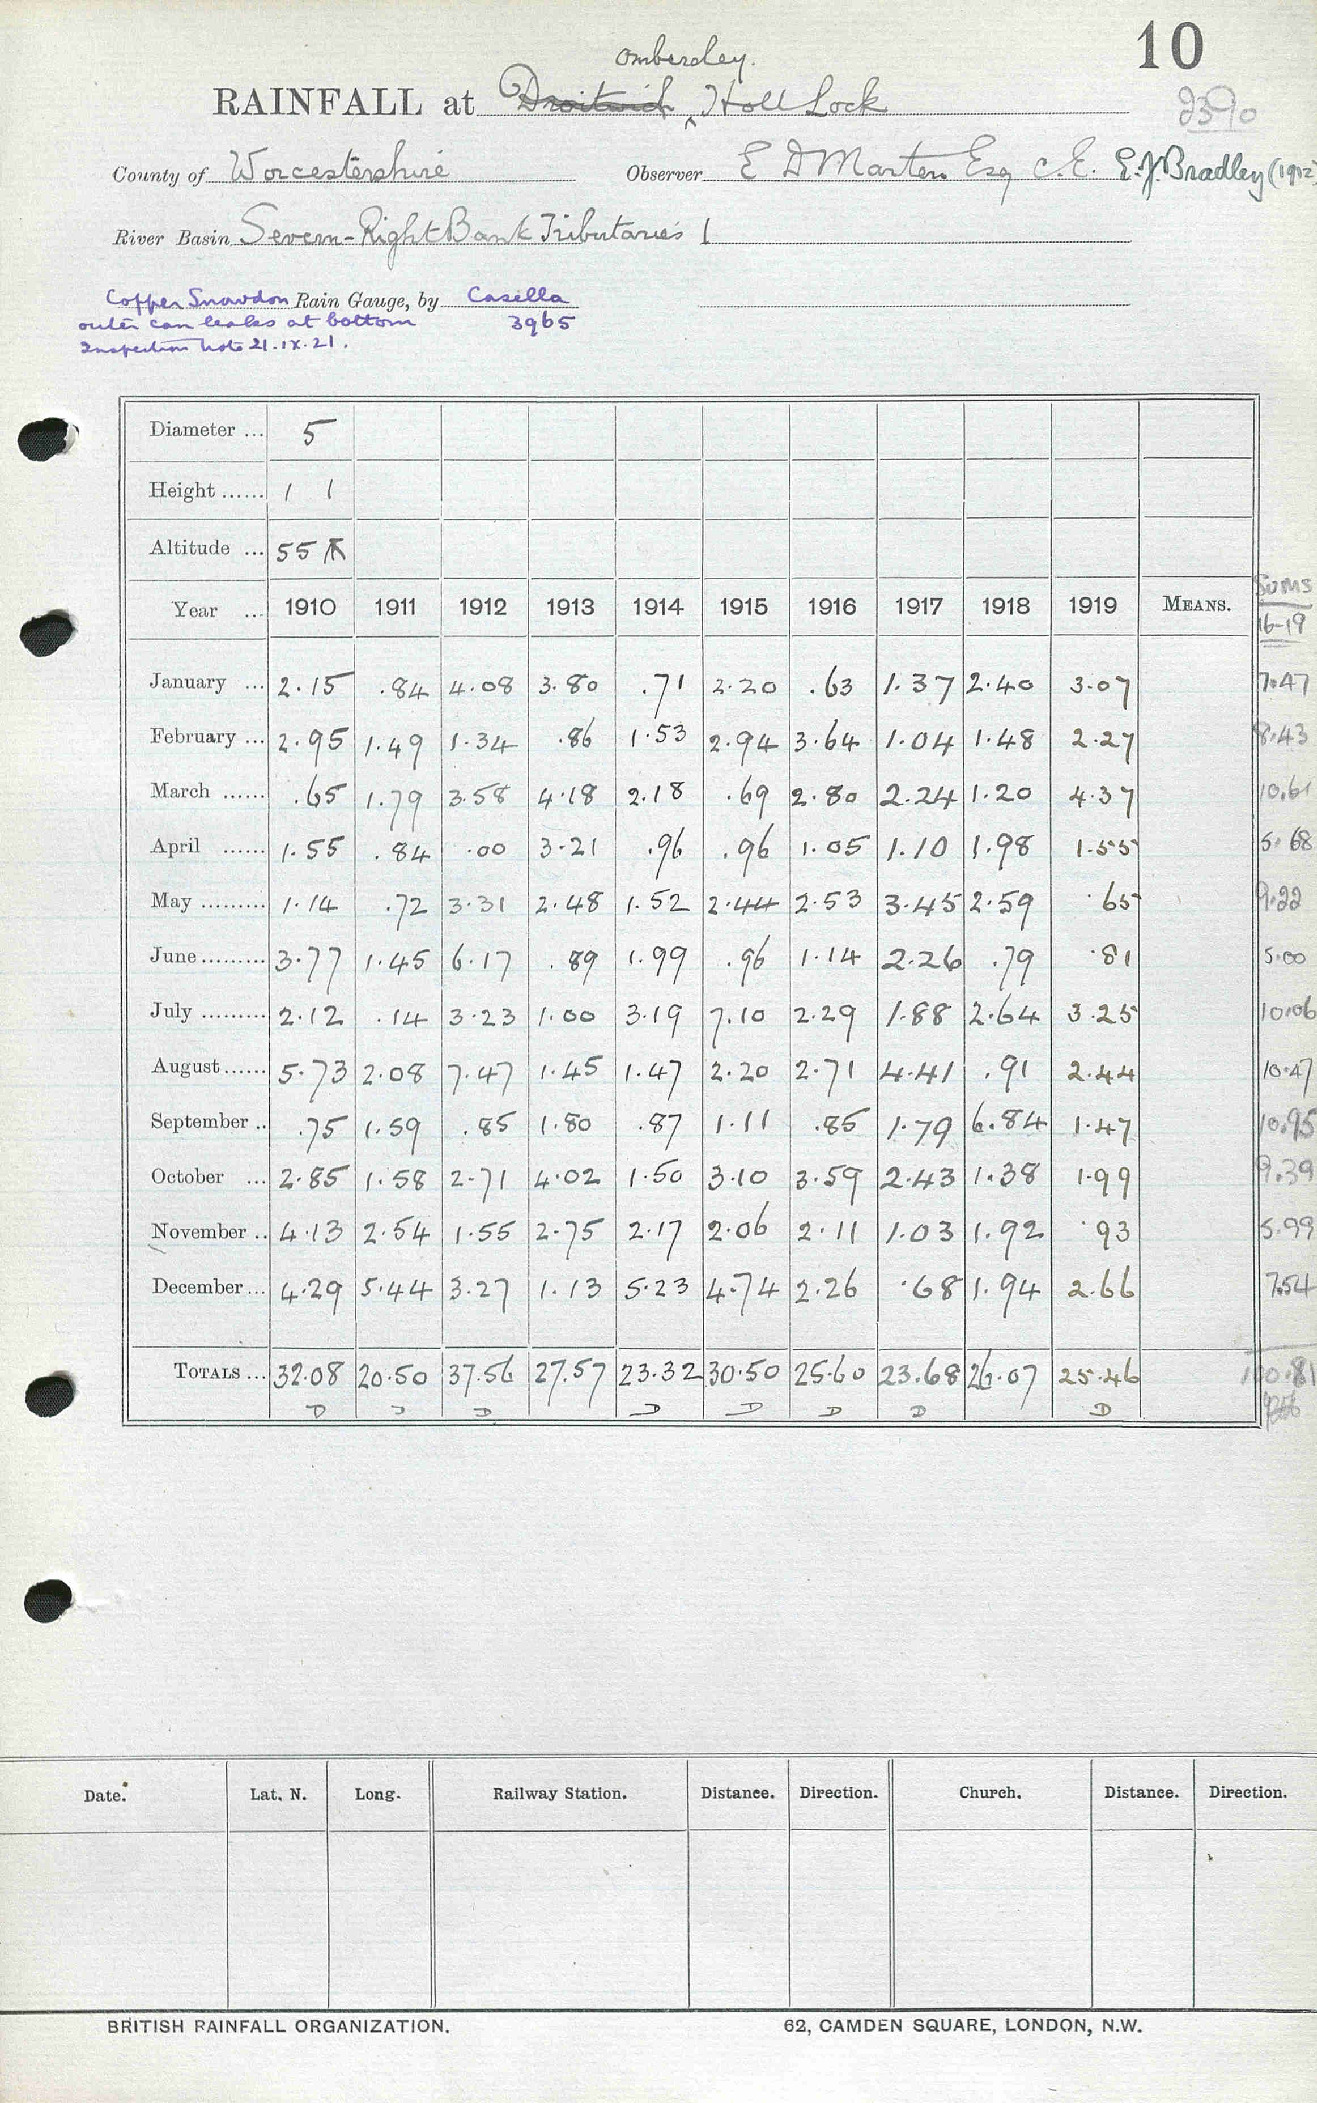 10
Ombersley.
RAINFALL at Droitwich Holt Lock
2390
County of Worcestershire Observer E D Marten Esq C.E. E.J Bradley (1912)
River Basin Severn-Right Bank Tributaries 1
Copper Snowdon Rain Gauge, by Casella
outer can leaks at bottom 3965
Inspection Note 21.IX.21.
Diameter ... 5
Height ...... 1 1
Altitude ... 55
Sums
Year ... 1910 1911 1912 1913 1914 1915 1916 1917 1918 1919 MEANS. 16-19
January ... 2.15 .84 4.08 3.80 .71 2.20 .63 1.37 2.40 3.07 7.47
February ... 2.95 1.49 1.34 .86 1.53 2.94 3.64 1.04 1.48 2.27 8.43
March ...... .65 1.79 3.58 4.18 2.18 .69 2.80 2.24 1.20 4.37 10.61
April ...... 1.55 .84 .00 3.21 .96 .96 1.05 1.10 1.98 1.55 5.68
May ......... 1.14 .72 3.31 2.48 1.52 2.44 2.53 3.45 2.59 .65 9.22
June ......... 3.77 1.45 6.17 .89 1.99 .96 1.14 2.26 .79 .81 5.00
July ......... 2.12 .14 3.23 1.00 3.19 7.10 2.29 1.88 2.64 3.25 10.06
August ...... 5.73 2.08 7.47 1.45 1.47 2.20 2.71 4.41 .91 2.44 10.47
September .. .75 1.59 .85 1.80 .87 1.11 .85 1.79 6.84 1.47 10.95
October ... 2.85 1.58 2.71 4.02 1.50 3.10 3.59 2.43 1.38 1.99 9.39
November .. 4.13 2.54 1.55 2.75 2.17 2.06 2.11 1.03 1.92 .93 5.99
December ... 4.29 5.44 3.27 1.13 5.23 4.74 2.26 .68 1.94 2.66 7.54
TOTALS ... 32.08 20.50 37.56 27.57 23.32 30.50 25.60 23.68 26.07 25.46 100.81
D D D D D D D D
Date. Lat. N. Long. Railway Station. Distance. Direction. Church. Distance. Direction.
BRITISH RAINFALL ORGANIZATION. 62, CAMDEN SQUARE, LONDON, N.W.